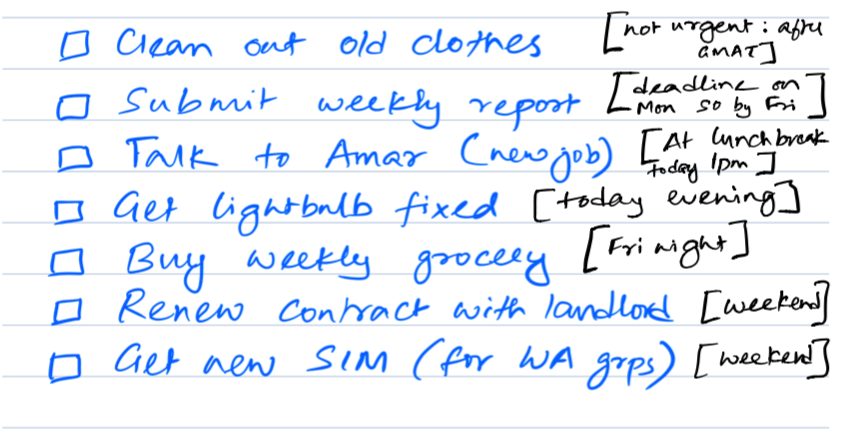 Clean out old clothes [not urgent : after GMAT]
Submit weekly report [deadline on Mon so by Fri]
Talk to Amar (new job) [At lunch break today 1pm]
Get lightbulb fixed [today evening]
Buy weekly grocery [Fri night]
Renew contract with landlord [weekend]
Get new SIM (for WA grps) [weekend]